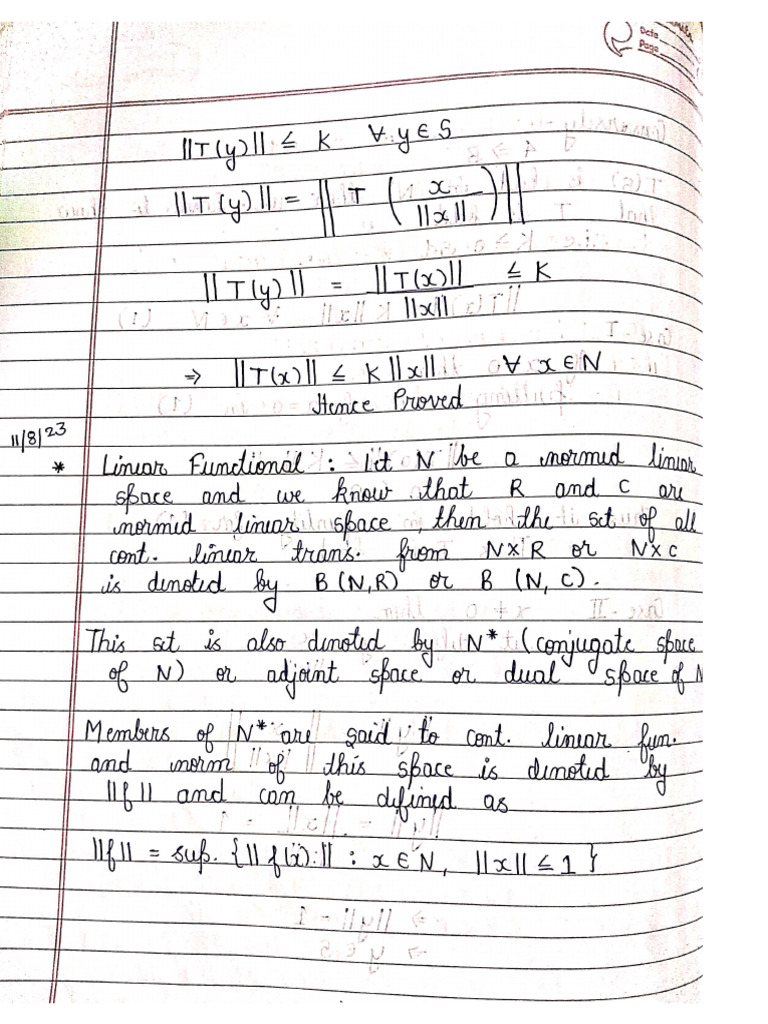 Date
Page
||T(y)|| ≤ K ∀ y ∈ S
||T(y)|| = || T ( x / ||x|| ) ||
||T(y)|| = ||T(x)|| / ||x|| ≤ K
⇒ ||T(x)|| ≤ K ||x|| ∀ x ∈ N
Hence Proved
11/8/23
* Linear Functional : Let N be a normed linear
space and we know that R and C are
normed linear space, then the set of all
cont. linear trans. from N×R or N×C
is denoted by B(N,R) or B (N, C).
This set is also denoted by N* (conjugate space
of N) or adjoint space or dual space of N
Members of N* are said to cont. linear fun.
and norm of this space is denoted by
||f|| and can be defined as
||f|| = sup. {|| f(x) || : x ∈ N, ||x|| ≤ 1}